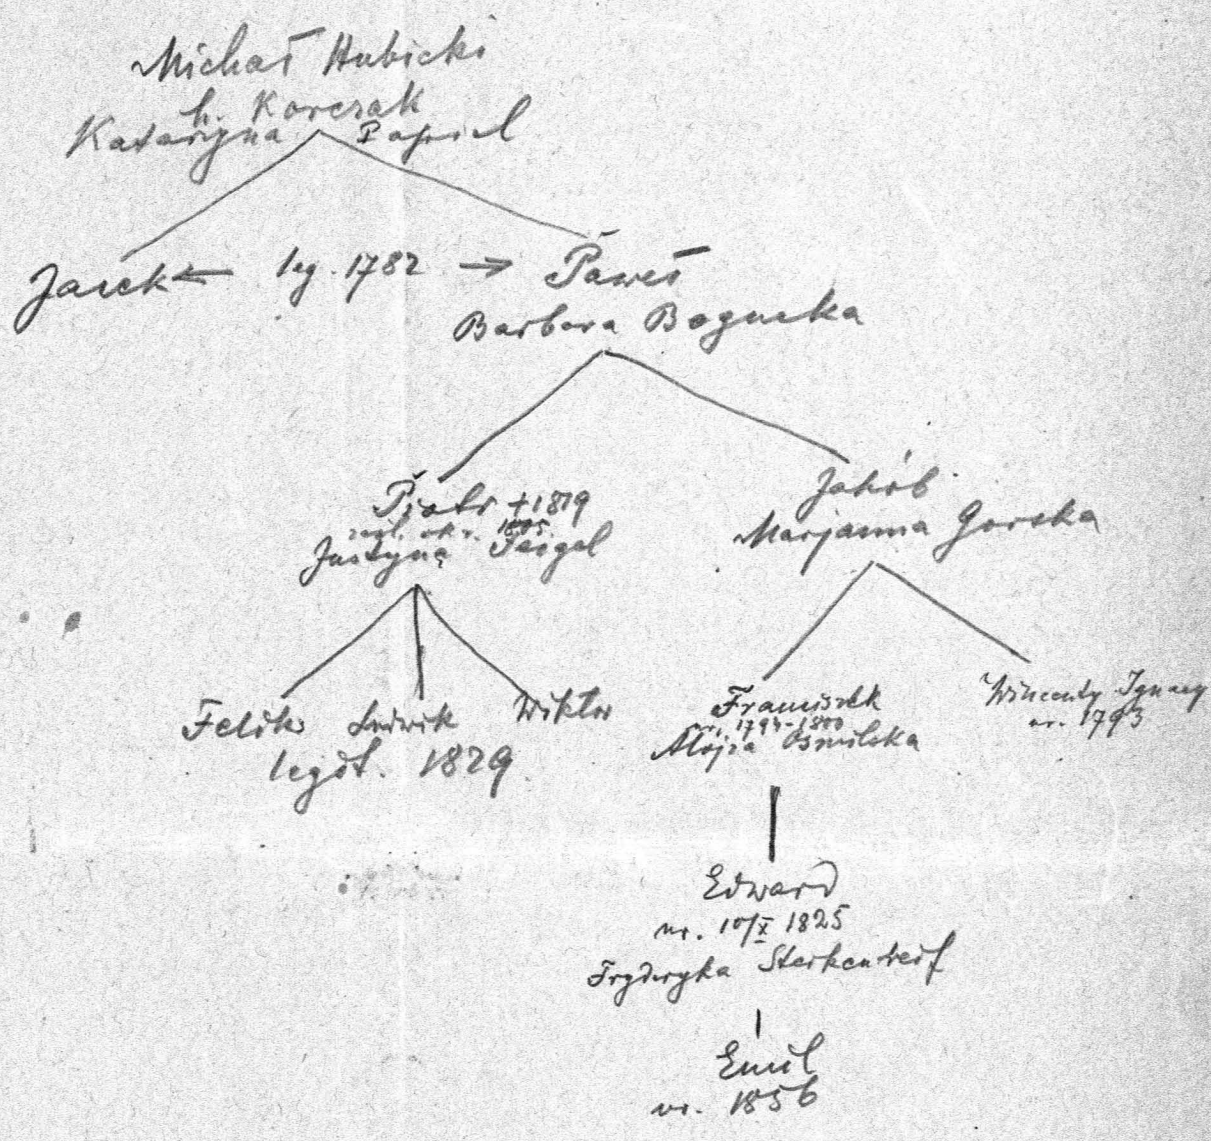 Michał Hubicki
h. Korczak
Katarzyna Popiel
Jacek ← leg. 1782 → Paweł
Barbara Bogucka
Piotr +1819
1805
Justyna Feigel
Jakób
Marjanna Gorska
Felik Ludwik Wiktor
legit. 1829
Franciszek
ur. 1794-1800
Alojza Osmilska
Wincenty Ignacy
ur. 1793
Edward
ur. 10/X 1825
Fryderyka Sterkendorf
Emil
ur. 1856